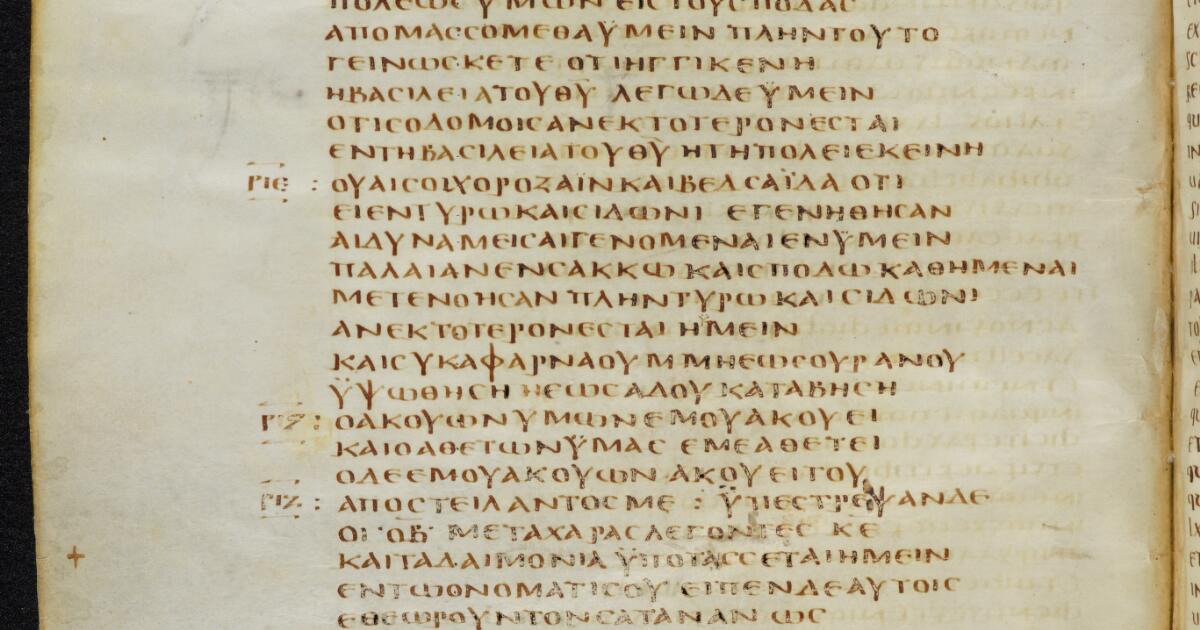 ΠΟΛΕΩΣ ΥΜΩΝ ΕΙΣ ΤΟΥΣ ΠΟΔΑΣ
ΑΠΟΜΑΣΣΟΜΕΘΑ ΫΜΕΙΝ ΠΛΗΝ ΤΟΥΤΟ
ΓΕΙΝΩΣΚΕΤΕ ΟΤΙ ΗΓΓΙΚΕΝ Η
Η ΒΑΣΙΛΕΙΑ ΤΟΥ ΘΥ ΛΕΓΩ ΔΕ ΫΜΕΙΝ
ΟΤΙ ΣΟΔΟΜΟΙΣ ΑΝΕΚΤΟΤΕΡΟΝ ΕΣΤΑΙ
ΕΝ ΤΗ ΒΑΣΙΛΕΙΑ ΤΟΥ ΘΥ Η ΤΗ ΠΟΛΕΙ ΕΚΕΙΝΗ
ΡΙΕ : ΟΥΑΙ ΣΟΙ ΧΟΡΟΖΑΪΝ ΚΑΙ ΒΕΔΣΑΪΔΑ ΟΤΙ
ΕΙ ΕΝ ΤΥΡΩ ΚΑΙ ΣΙΔΩΝΙ ΕΓΕΝΗΘΗΣΑΝ
ΑΙ ΔΥΝΑΜΕΙΣ ΑΙ ΓΕΝΟΜΕΝΑΙ ΕΝ ΫΜΕΙΝ
ΠΑΛΑΙ ΑΝ ΕΝ ΣΑΚΚΩ ΚΑΙ ΣΠΟΔΩ ΚΑΘΗΜΕΝΑΙ
ΜΕΤΕΝΟΗΣΑΝ ΠΛΗΝ ΤΥΡΩ ΚΑΙ ΣΙΔΩΝΙ
ΑΝΕΚΤΟΤΕΡΟΝ ΕΣΤΑΙ Η ΜΕΙΝ
ΚΑΙ ΣΥ ΚΑΦΑΡΝΑΟΥΜ ΜΗ ΕΩΣ ΟΥΡΑΝΟΥ
ΫΨΩΘΗΣΗ Η ΕΩΣ ΑΔΟΥ ΚΑΤΑΒΗΣΗ
ΡΙϚ : Ο ΑΚΟΥΩΝ ΥΜΩΝ ΕΜΟΥ ΑΚΟΥΕΙ
ΚΑΙ Ο ΑΘΕΤΩΝ ΫΜΑΣ ΕΜΕ ΑΘΕΤΕΙ
Ο ΔΕ ΕΜΟΥ ΑΚΟΥΩΝ ΑΚΟΥΕΙ ΤΟΥ
ΡΙΖ : ΑΠΟΣΤΕΙΛΑΝΤΟΣ ΜΕ : ΫΠΕΣΤΡΕΨΑΝ ΔΕ
ΟΙ ΟΒ ΜΕΤΑ ΧΑΡΑΣ ΛΕΓΟΝΤΕΣ ΚΕ
ΚΑΙ ΤΑ ΔΑΙΜΟΝΙΑ ΫΠΟΤΑΣΣΕΤΑΙ ΗΜΕΙΝ
ΕΝ ΤΩ ΟΝΟΜΑΤΙ ΣΟΥ ΕΙΠΕΝ ΔΕ ΑΥΤΟΙΣ
ΕΘΕΩΡΟΥΝ ΤΟΝ ΣΑΤΑΝΑΝ ΩΣ